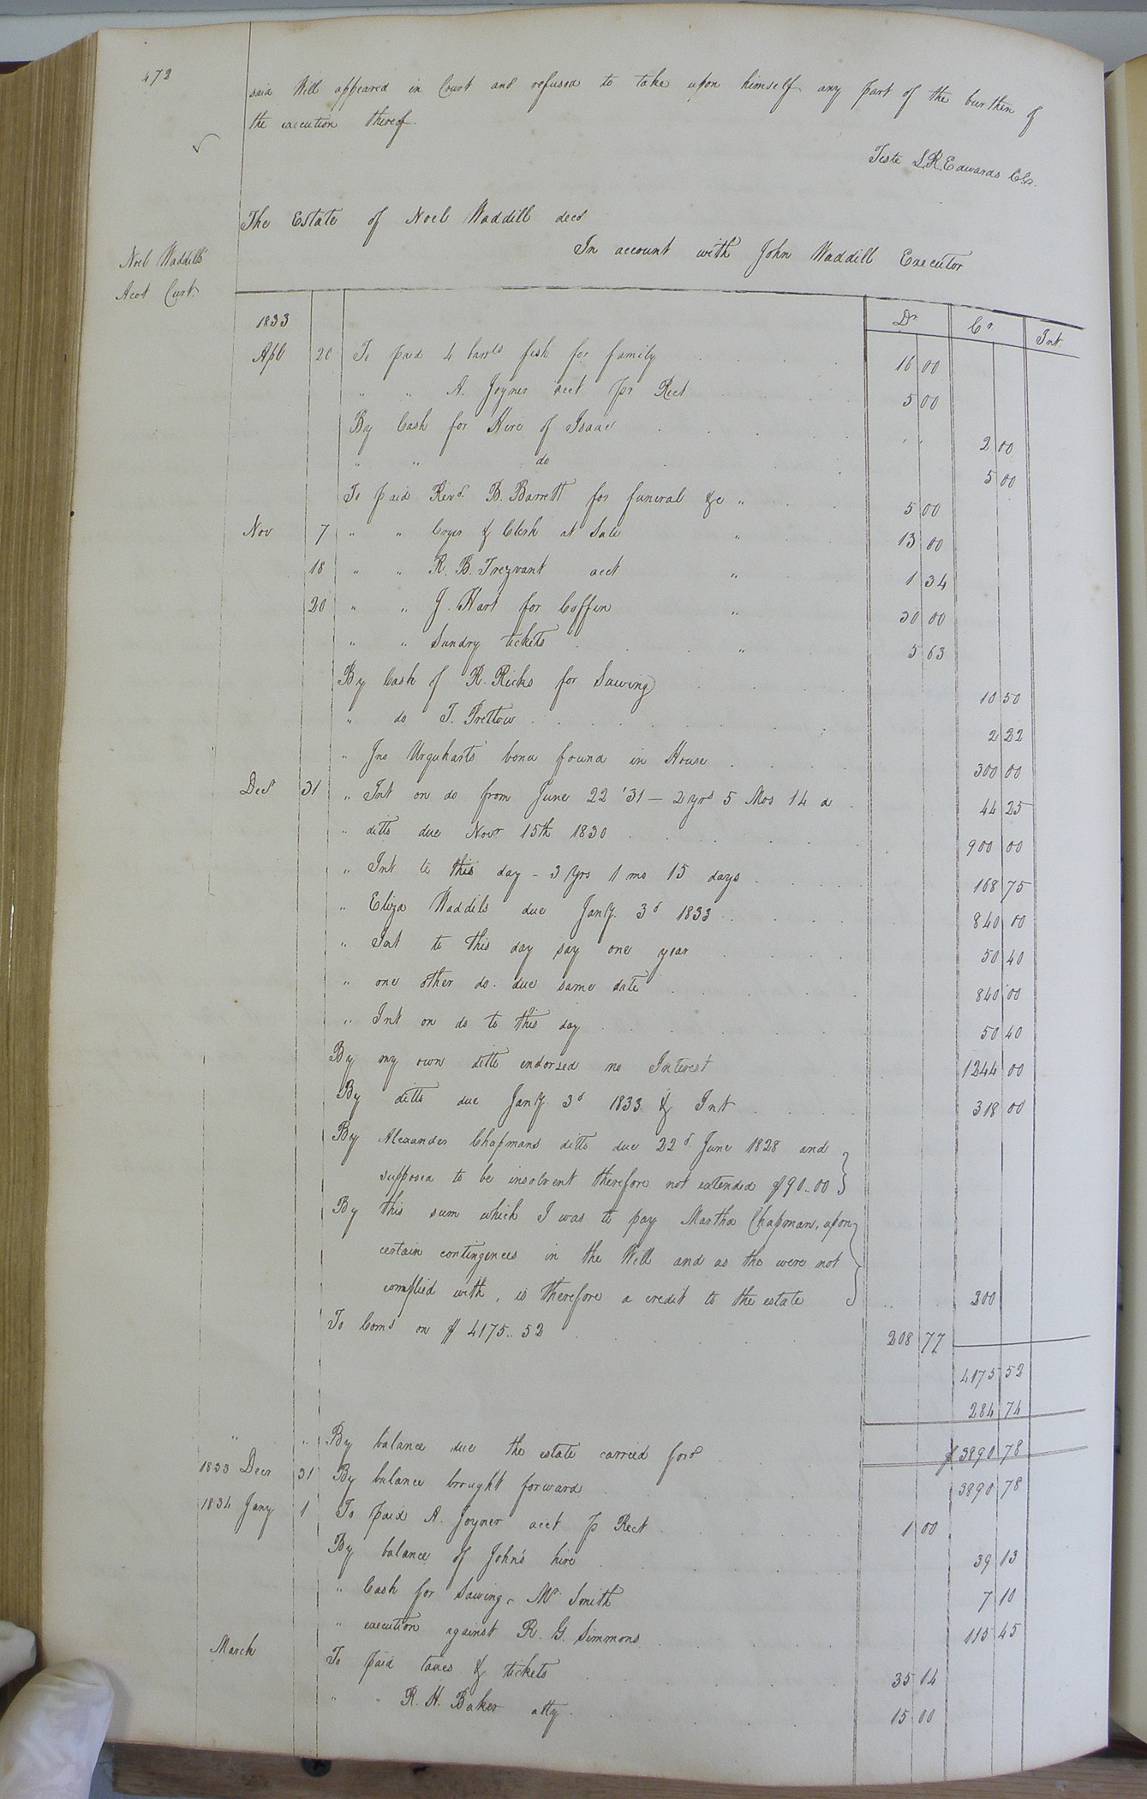 472
said Will appeared in Court and refused to take upon himself any part of the burthen of
the execution thereof.
Teste L R Edwards Clk.
The Estate of Noel Waddill decd
In account with John Waddill Executor
Noel Waddills
Acct Curt.
1833 Dr Cr Int
Apl 20 To paid 4 barrls fish for family 16 00
" " A. Joyner acct pr Rect 5 00
By Cash for Hire of Isaac " " 2 00
" " do 5 00
To paid Revd B. Barrett for funeral &c " 5 00
Nov 7 " " Cryer & Clerk at Sale " 13 00
18 " " R. B. Trezvant acct " 1 34
20 " " J. Hart for Coffin " 30 00
" " Sundry tickets " 5 63
By Cash of R. Ricks for Sawing 10 50
" do T. Pretlow 2 22
" Jno Urquharts bond found in House 300 00
Decr 31 " Int on do from June 22 '31 - 2 yrs 5 Mos 14 d 44 25
" ditto due Novr 15th 1830 900 00
" Int to this day - 3 Yrs 1 mo 15 days 168 75
" Eliza Waddils due Jany. 3d 1833 840 00
" Int to this day say one year 50 40
" one other do. due same date 840 00
" Int on do to this day 50 40
By my own ditto endorsed no Interest 1244 00
By ditto due Jany 3d 1833 & Int 318 00
By Alexander Chapmans ditto due 22d June 1828 and
supposed to be insolvent therefore not extended $90..00
By this sum which I was to pay Martha Chapman, upon
certain contingences in the Will and as the were not
complied with, is therefore a credit to the estate 200
To Coms on $ 4175..52 208 77
4175 52
284 74
" " By balance due the estate carreed ford $3890 78
1833 Decr 31 By balance brought forward 3890 78
1834 Jany 1 To paid A. Joyner acct p Rect 1 00
By balance of John's hire 39 13
" Cash for Sawing, Mr Smith 7 10
" execution against R. G. Simmons 115 45
March To paid taxes & tickets 35 14
" " R. H. Baker atty 15 00